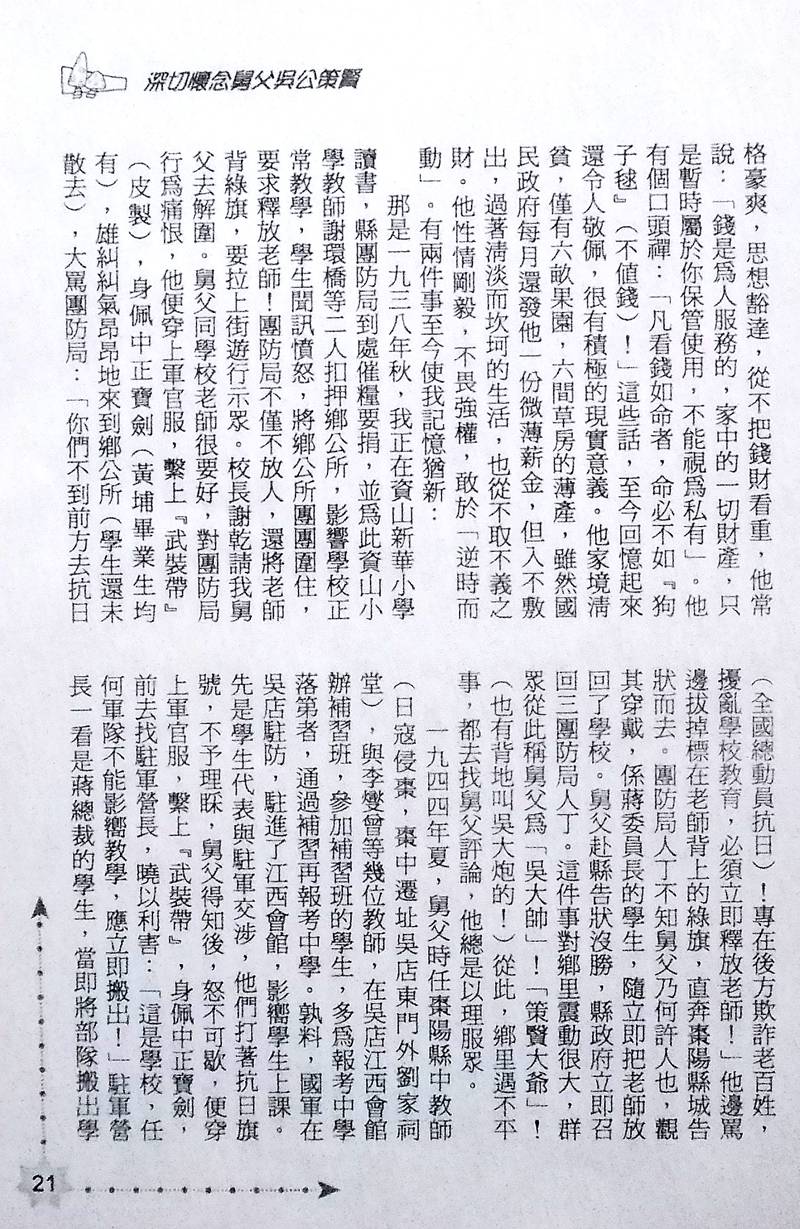 深切懷念舅父吳公策賢
格豪爽，思想豁達，從不把錢財看重，他常
說：「錢是爲人服務的，家中的一切財產，只
是暫時屬於你保管使用，不能視爲私有」。他
有個口頭禪：「凡看錢如命者，命必不如『狗
子毬』（不值錢）！」這些話，至今回憶起來
還令人敬佩，很有積極的現實意義。他家境淸
貧，僅有六畝果園，六間草房的薄產，雖然國
民政府每月還發他一份微薄薪金，但入不敷
出，過著淸淡而坎坷的生活，也從不取不義之
財。他性情剛毅，不畏強權，敢於「逆時而
動」。有兩件事至今使我記憶猶新：
那是一九三八年秋，我正在資山新華小學
讀書，縣團防局到處催糧要捐，並爲此資山小
學教師謝環橋等二人扣押鄉公所，影響學校正
常教學，學生聞訊憤怒，將鄉公所團團圍住，
要求釋放老師！團防局不僅不放人，還將老師
背綠旗，要拉上街遊行示眾。校長謝乾請我舅
父去解圍。舅父同學校老師很要好，對團防局
行爲痛恨，他便穿上軍官服，繫上『武裝帶』
（皮製），身佩中正寶劍（黃埔畢業生均
有），雄糾糾氣昂昂地來到鄉公所（學生還未
散去），大罵團防局：「你們不到前方去抗日
（全國總動員抗日）！專在後方欺詐老百姓，
擾亂學校教育，必須立即釋放老師！」他邊罵
邊拔掉標在老師背上的綠旗，直奔棗陽縣城告
狀而去。團防局人丁不知舅父乃何許人也，觀
其穿戴，係蔣委員長的學生，隨立即把老師放
回了學校。舅父赴縣告狀沒勝，縣政府立即召
回三團防局人丁。這件事對鄉里震動很大，群
眾從此稱舅父爲「吳大帥」！「策賢大爺」！
（也有背地叫吳大炮的！）從此，鄉里遇不平
事，都去找舅父評論，他總是以理服眾。
一九四四年夏，舅父時任棗陽縣中教師
（日寇侵棗，棗中遷址吳店東門外劉家祠
堂），與李燮曾等幾位教師，在吳店江西會館
辦補習班，參加補習班的學生，多爲報考中學
落第者，通過補習再報考中學。孰料，國軍在
吳店駐防，駐進了江西會館，影嚮學生上課。
先是學生代表與駐軍交涉，他們打著抗日旗
號，不予理睬，舅父得知後，怒不可歇，便穿
上軍官服，繫上『武裝帶』，身佩中正寶劍，
前去找駐軍營長，曉以利害：「這是學校，任
何軍隊不能影嚮教學，應立即搬出！」駐軍營
長一看是蔣總裁的學生，當即將部隊搬出學
21